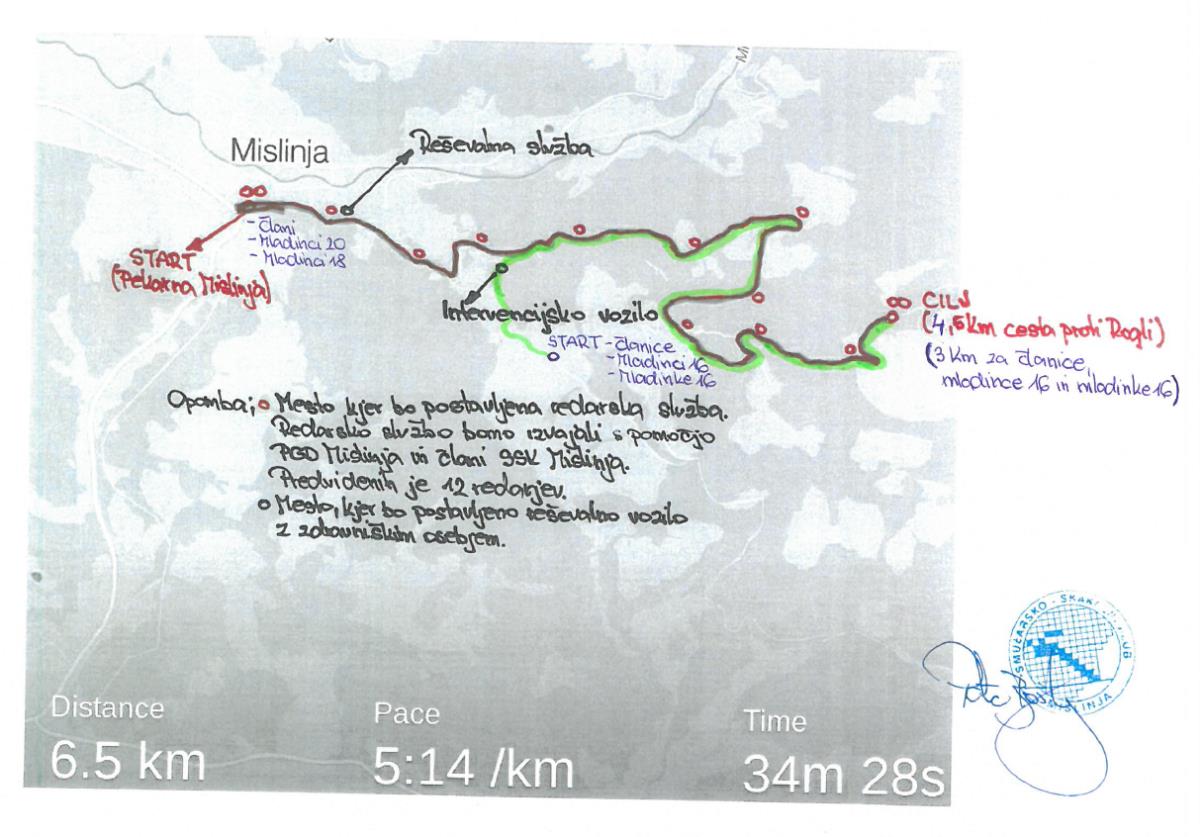 Mislinja
Reševalna služba
- Člani
- Mladinci 20
- Mladinci 18
START
(Pekarna Mislinja)
Intervencijsko vozilo
START - članice
- Mladinci 16
- Mladinke 16
CILJ
(4,5km cesta proti Rogli)
(3 km za članice,
mladince 16 in mladinke 16)
Opomba; o Mesto kjer bo postavljena redarska služba.
Redarsko službo bomo izvajali s pomočjo
PGD Mislinja in člani SSK Mislinja.
Predvidenih je 12 redarjev.
o Mesto, kjer bo postavljeno reševalno vozilo
z zdravniškim osebjem.
SMUČARSKO - SKAK
UB
MISLINJA
Distance
6.5 km
Pace
5:14 /km
Time
34m 28s